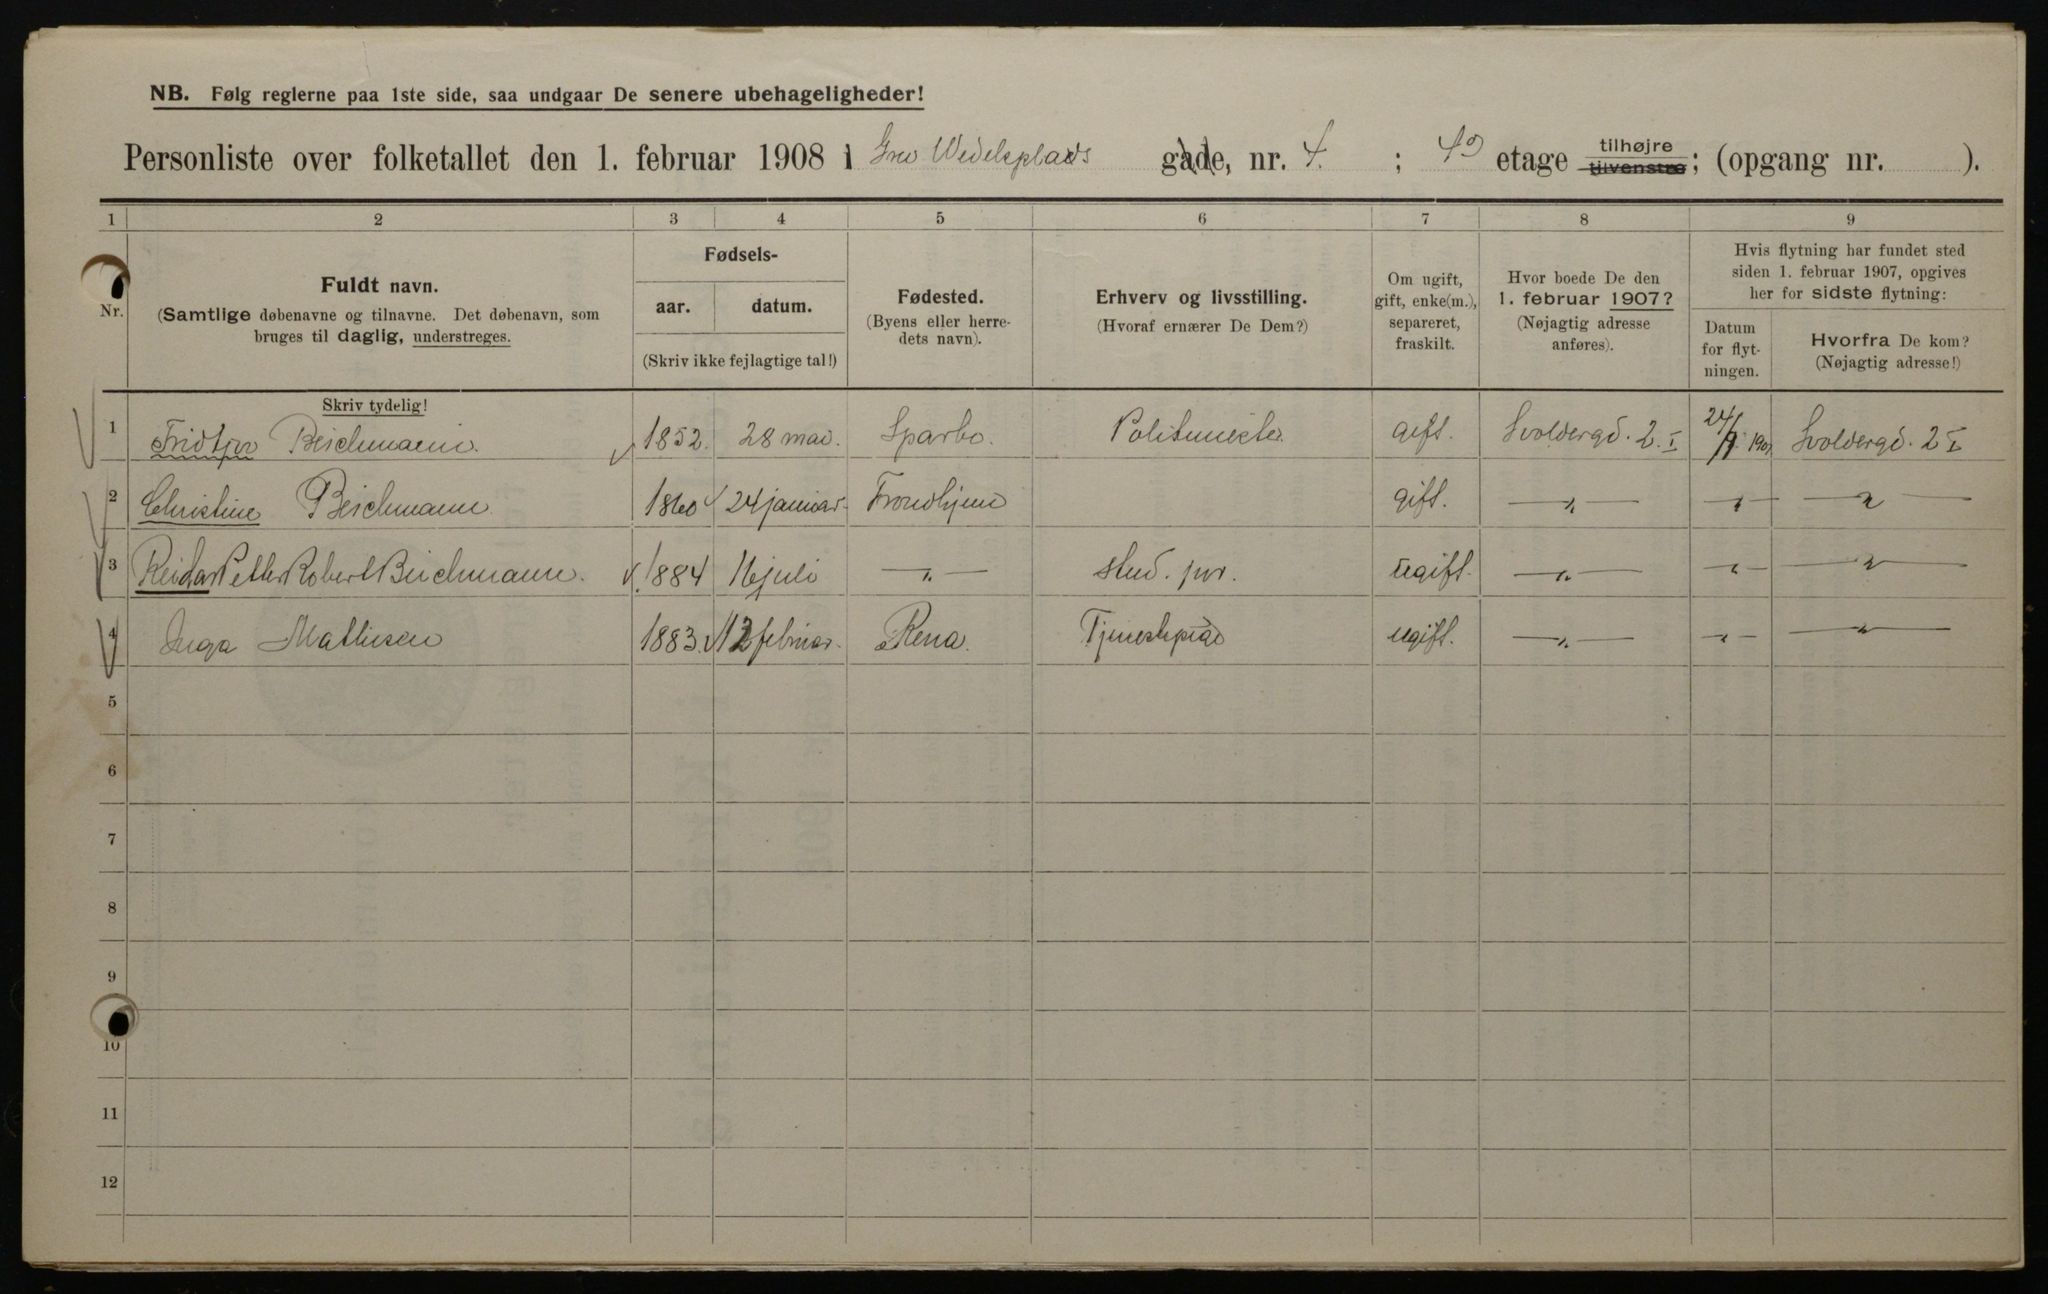 NB. Følg reglerne paa 1ste side, saa undgaar De senere ubehageligheder!
Personliste over folketallet den 1. februar 1908 i Grev Wedelsplads gade, nr. 4. ; 4º etage tilhøjre tilvenstre; (opgang nr. ).
1 2 3 4 5 6 7 8 9
Nr.
Fuldt navn.
(Samtlige døbenavne og tilnavne. Det døbenavn, som
bruges til daglig, understreges.
Fødsels-
aar. datum.
(Skriv ikke fejlagtige tal!)
Fødested.
(Byens eller herre-
dets navn).
Erhverv og livsstilling.
(Hvoraf ernærer De Dem?)
Om ugift,
gift, enke(m.),
separeret,
fraskilt.
Hvor boede De den
1. februar 1907?
(Nøjagtig adresse
anføres).
Hvis flytning har fundet sted
siden 1. februar 1907, opgives
her for sidste flytning:
Datum
for flyt-
ningen.
Hvorfra De kom?
(Nøjagtig adresse!)
Skriv tydelig!
1 Fridtjov Beichmann. 1852. 28 mai. Sparbo. Politimester. gift. Svoldergd. 2. I 24/9 1907 Svoldergd. 2 I
2 Christine Beichmann. 1860 24 januar. Trondhjem gift. — " — — " — — " —
3 Reidar Petter Robert Beichmann. 1884 16 juli — " — stud. jur. ugift. — " — — " — — " —
4 Inga Mathiesen 1883. 12 februar. Rena. Tjenestepige ugift. — " — — " — — " —
5
6
7
8
9
10
11
12